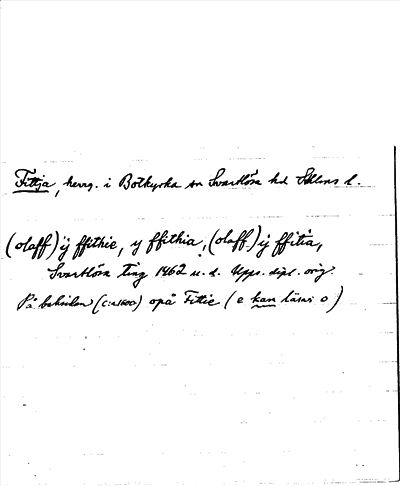 Fittja, herrg. i Botkyrka sn Svartlösa hd Sthlms l.
(olaff) ij ffithie, y ffithia, (olaff) ij ffitia,
Svartlösa ting 1462 u. d. Upps. dipl. orig.
På baksidan (c:a 1600) opå Fittie (e kan läsas o)